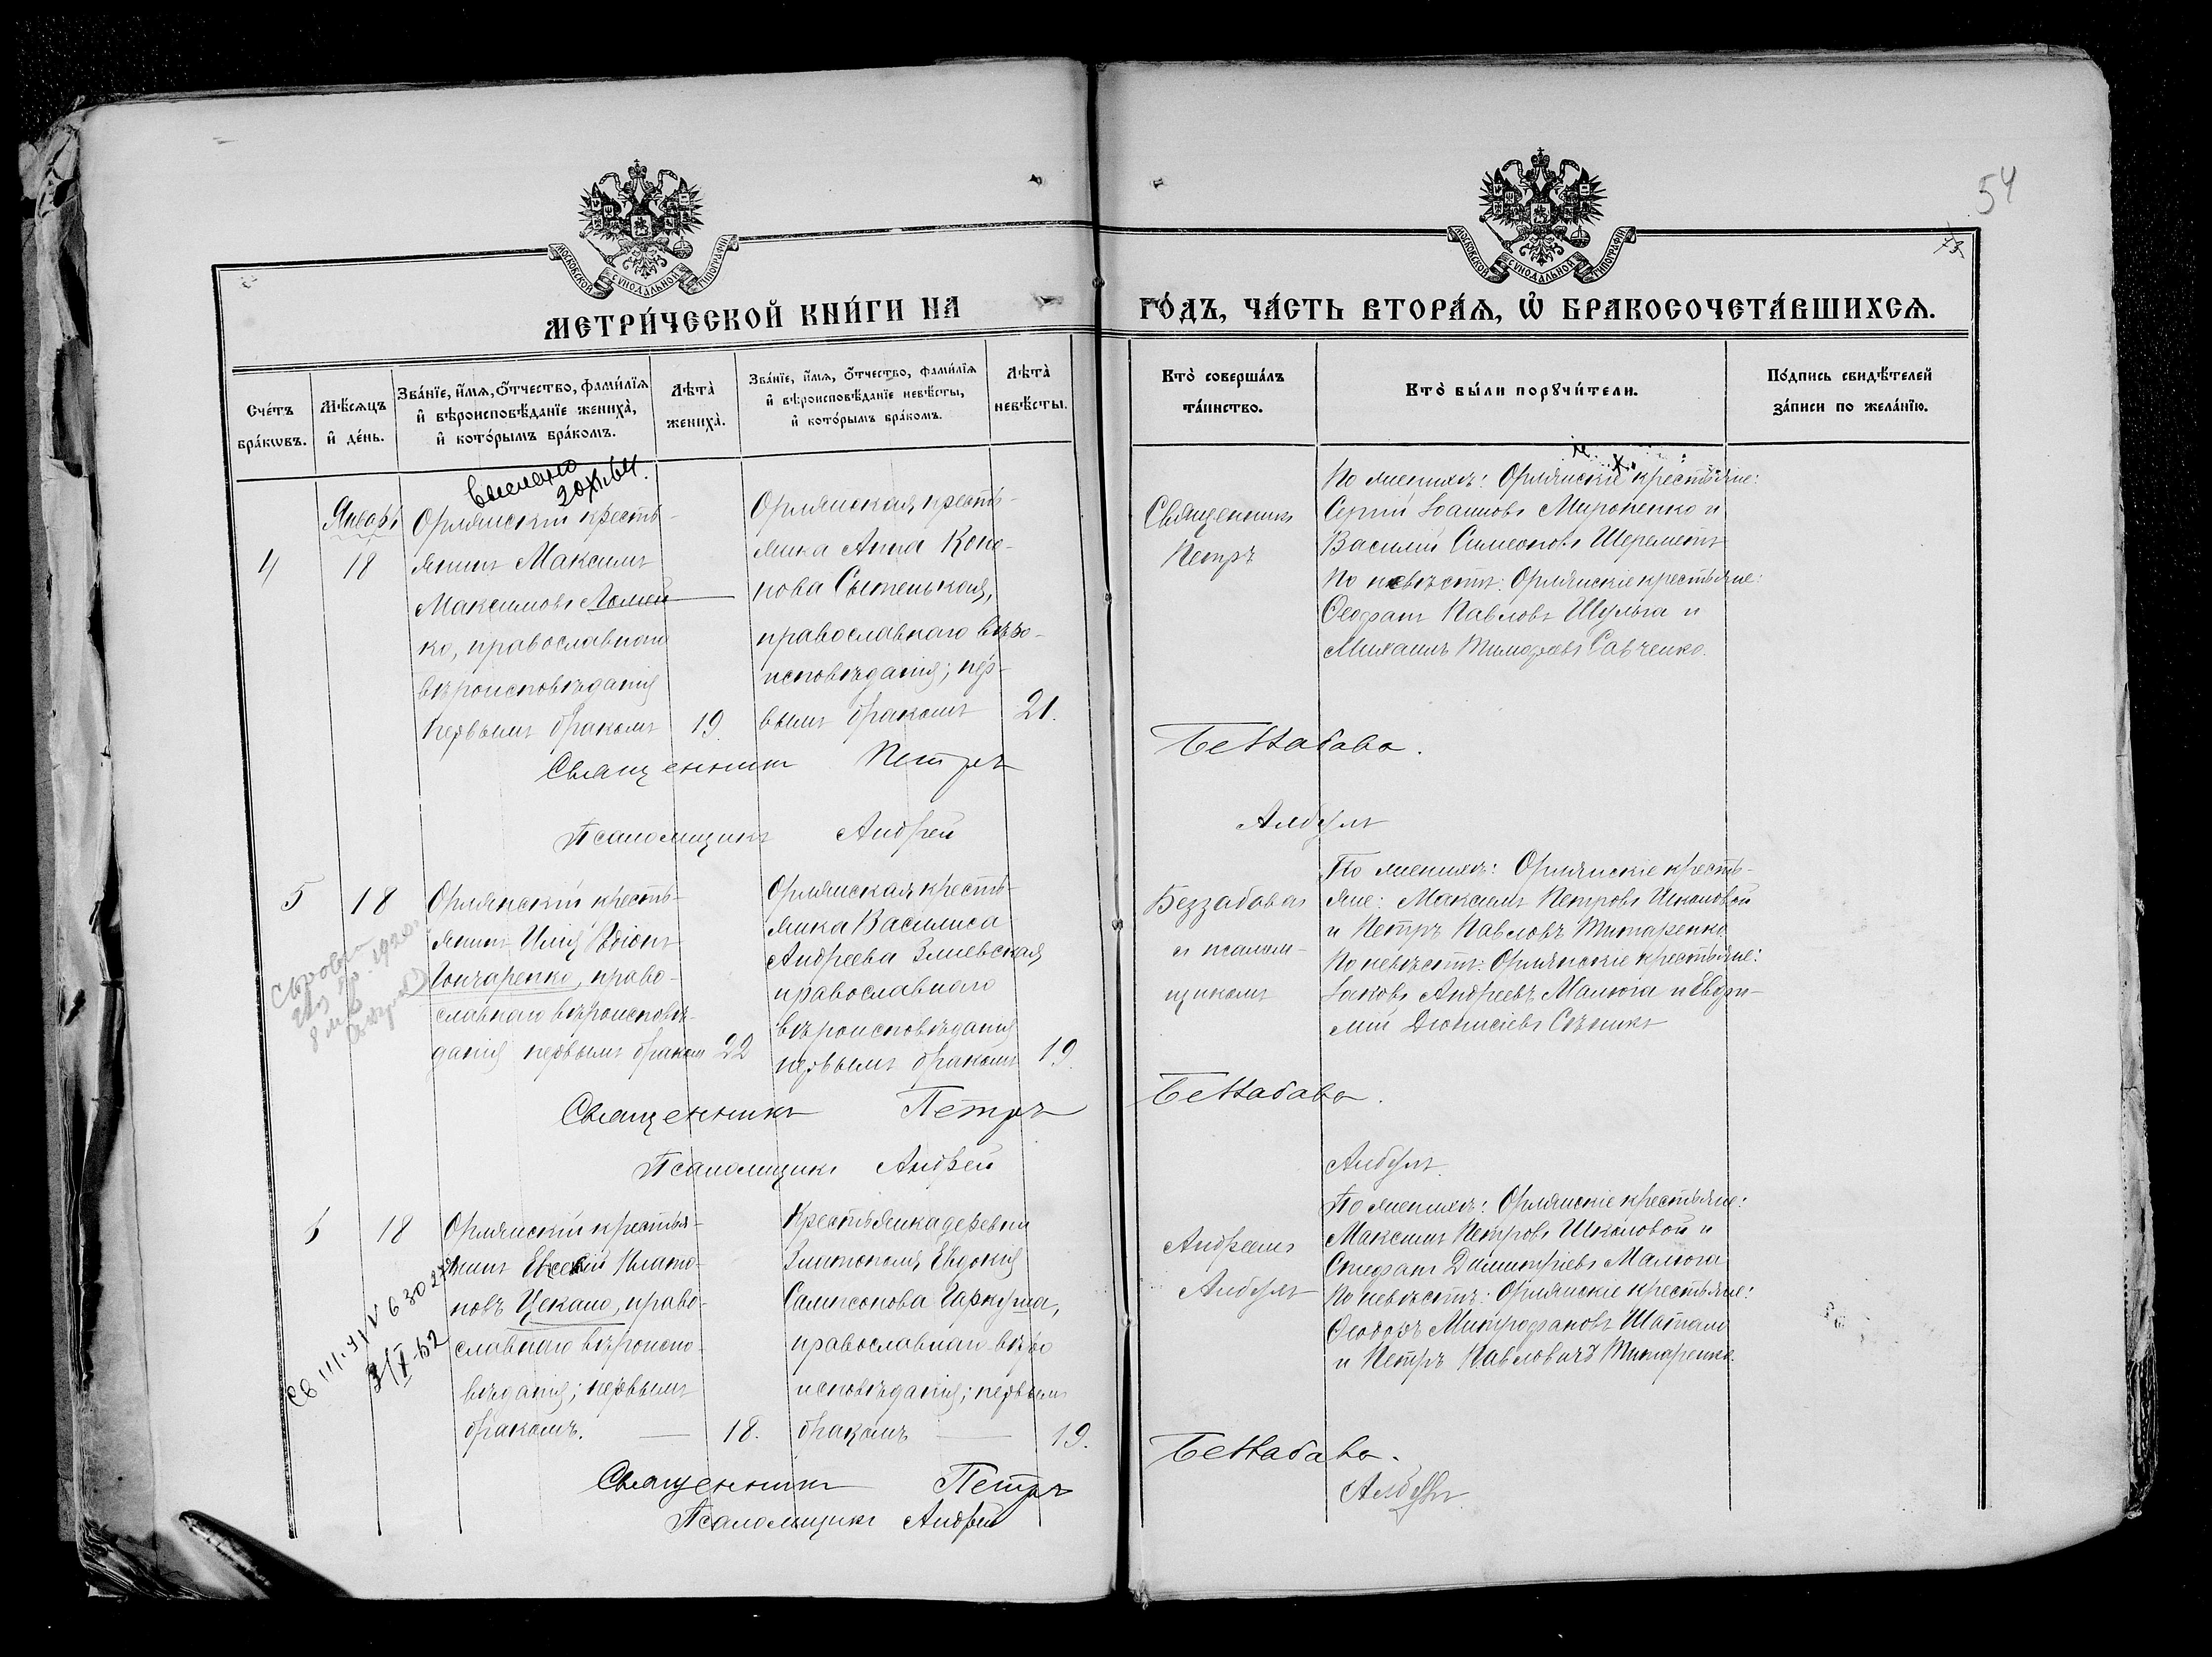 54
МОСКОВСКОЙ СѴНОДАЛЬНОЙ ТИПОГРАФІИ
МОСКОВСКОЙ СѴНОДАЛЬНОЙ ТИПОГРАФІИ
МЕТРИ́ЧЕСКОЙ КНИ́ГИ НА
ГО́ДЪ, ЧА́СТЬ ВТОРА́Ѧ, Ѽ БРАКОСОЧЕТА́ВШИХСѦ.
Сче́тъ бра́кѡвъ.
Мѣ́сяцъ и҆ де́нь.
Зва́нїе, и҆́мѧ, ѻ҆́тчество, фами́лїѧ
и҆ вѣроисповѣ́данїе жениха̀,
и҆ кото́рымъ бра́комъ.
Лѣта̀ жениха̀.
Зва́нїе, и҆́мѧ, ѻ҆́тчество, фами́лїѧ
и҆ вѣроисповѣ́данїе невѣ́сты,
и҆ кото́рымъ бра́комъ.
Лѣта̀ невѣ́сты.
Кто̀ соверша́лъ
та́инство.
Кто̀ бы́ли порꙋчи́тели.
По́дпись свидѣ́телей
за́писи по жела́нїю.
выслано
20/XI.64.
4
Январь
18
Орлянскій кресть-
янинъ Максимъ
Максимовъ Ломей-
ко, православнаго
вѣроисповѣданія
первымъ бракомъ
19.
Орлянская кресть-
янка Анна Коно-
нова Сытенькая,
православнаго вѣро-
исповѣданія; пер-
вымъ бракомъ
21.
Священникъ
Петръ
По женихѣ: Орлянскіе крестьяне:
Сергій Іоанновъ Мироненко и
Василій Симеоновъ Шереметъ
По невѣстѣ: Орлянскіе крестьяне:
Ѳеофанъ Павловъ Шульга и
Михаилъ Тимофеевъ Савченко.
Священникъ Петръ Беззабава.
Псаломщикъ Андрей
5
18
Орлянскій кресть-
янинъ Илія
Гончаренко, право-
славнаго вѣроисповѣ-
данія первымъ браком
22
Орлянская кресть-
янка Василиса
Андреева Змиевская
православнаго
вѣроисповѣданія
первымъ бракомъ
19.
Беззабава
съ псалом-
щикомъ
По женихѣ: Орлянскіе кресть-
яне: Максимъ Петровъ Шкаловой
и Петръ Павловъ Титаренко.
По невѣстѣ: Орлянскіе крестьяне:
Іаковъ Андреевъ Малюга и Евфи-
мій Діонисіевъ
Священникъ Петръ Беззабава.
Псаломщикъ Андрей
6
18
Орлянскій крестья-
нинъ Евсевій Плато-
новъ Цекало, право-
славнаго вѣроиспо-
вѣданія; первымъ
бракомъ.
18.
Крестьянка деревни
Златополя Евдокія
Сампсонова Гаркуша,
православнаго вѣро
исповѣданія; первымъ
бракомъ
19.
Андреемъ
По женихѣ: Орлянскіе крестьяне:
Максимъ Петровъ Шкаловой и
Стефанъ Димитріевъ Малюга
По невѣстѣ: Орлянскіе крестьяне:
Ѳеодоръ Митрофановъ Шаталъ
и Петръ Павловичъ Титаренко.
Священникъ Петръ Беззабава.
Псаломщикъ Андрей